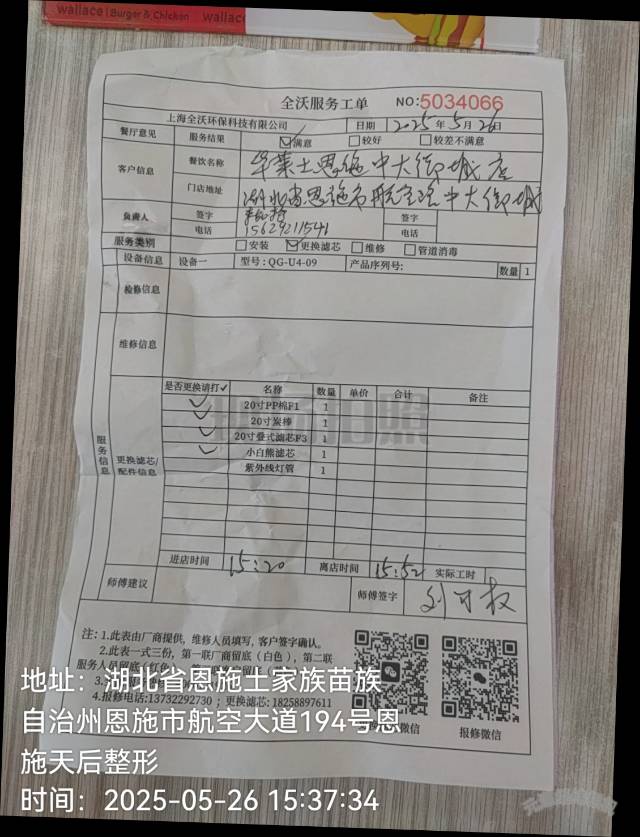 wallace | Burger & Chicken
wallace | Burger & Chicken
全沃服务工单 NO:5034066
上海全沃环保科技有限公司 日期 2025年5月26日
餐厅意见 服务结果 满意 较好 较差不满意
客户信息 餐饮名称 华莱士恩施中大御城店
门店地址 湖北省恩施市航空路中大御城
负责人 签字 签字
电话 15629211541 电话
服务类别 安装 更换滤芯 维修 管道消毒
设备信息 设备一 型号:QG-U4-09 产品序列号: 数量 1
检修信息
维修信息
服务信息
是否更换请打✓ 名称 数量 单价 合计 备注
✓ 20寸PP棉F1 1
✓ 20寸炭棒 1
✓ 20寸叠式滤芯F3 1
✓ 小白熊滤芯 1
紫外线灯管 1
更换滤芯/
配件信息
进店时间 15:20 离店时间 15:52 实际工时
师傅建议 师傅签字 刘可权
注：1.此表由厂商提供，维修人员填写，客户签字确认。
2.此表一式三份，第一联厂商留底（白色），第二联
服务人员留底（红色）
4.报修电话:13732292730；更换滤芯:18258897611
报修微信
地址：湖北省恩施土家族苗族
自治州恩施市航空大道194号恩
施天后整形
时间：2025-05-26 15:37:34